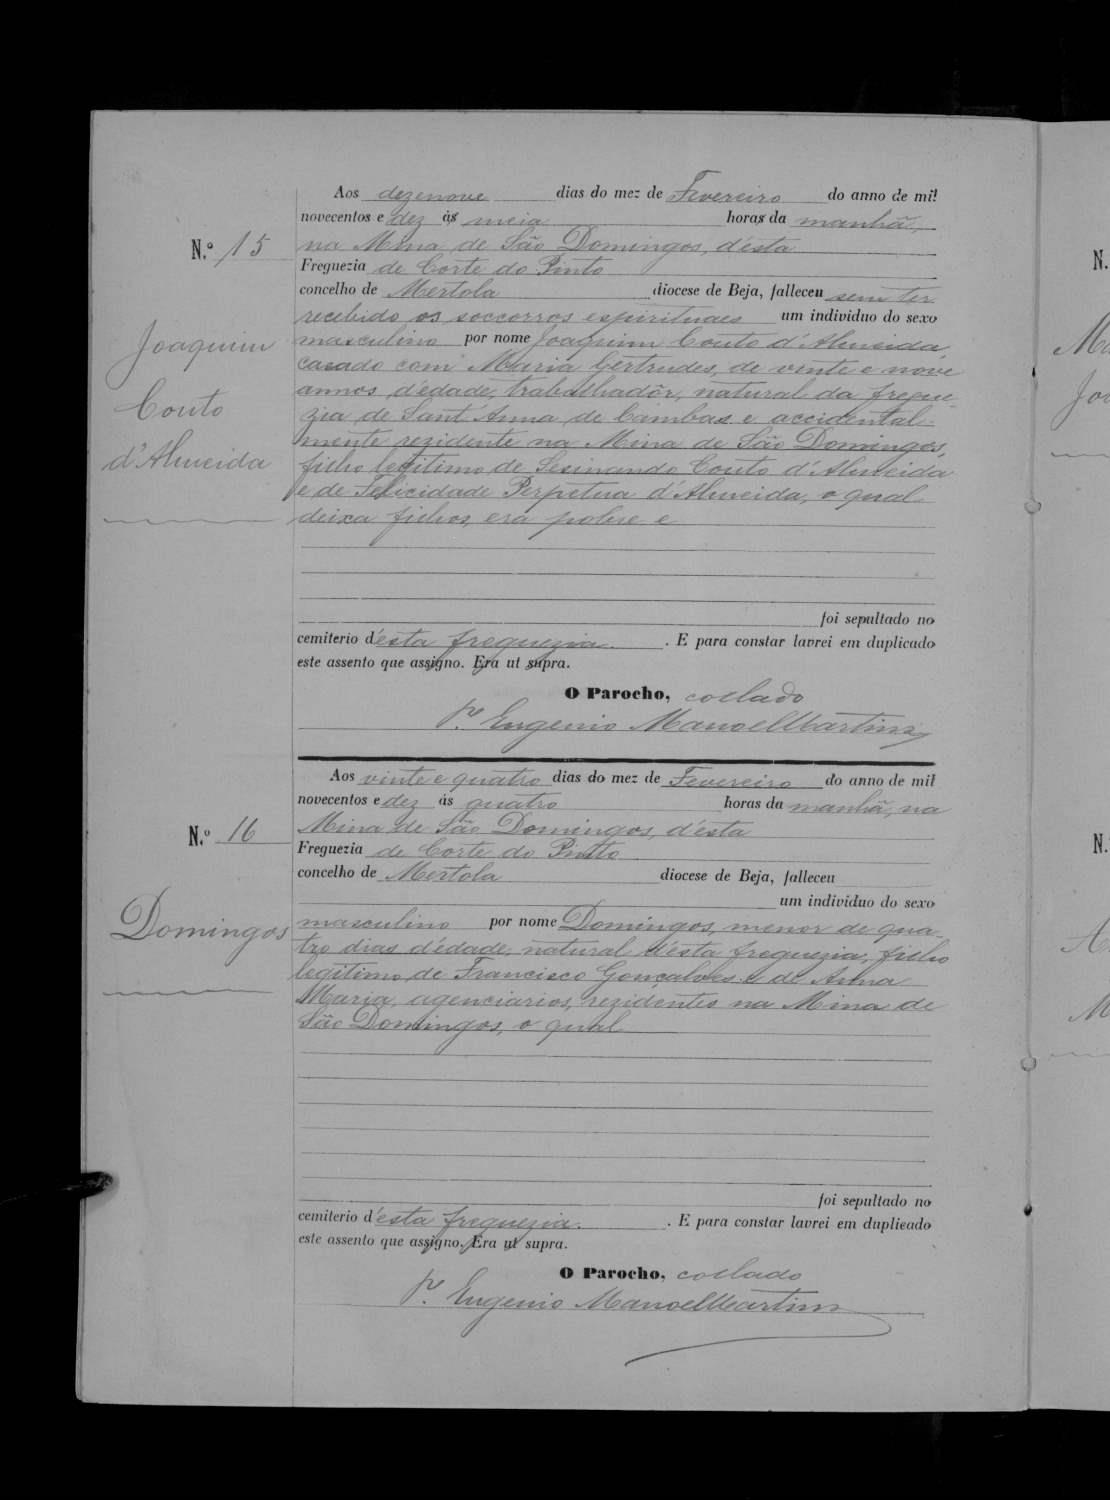 Aos dezenove dias do mez de Fevereiro do anno de mil
novecentos e dez ás meia horas da manhã,
N.º 15
na Mina de São Domingos, d'ésta
Freguezia de Corte do Pinto
concelho de Mertola diocese de Beja, falleceu sem ter
recebido os soccorros espirituaes um individuo do sexo
Joaquim
Couto
d'Almeida
masculino por nome Joaquim Couto d'Almeida,
casado com Maria Gertrudes, de vinte e nove
annos d'edade, trabalhadôr, natural da fregue-
zia de Sant'Anna de Cambas e accidental-
mente rezidente na Mina de São Domingos,
filho legitimo de Sesinando Couto d'Almeida
e de Felicidade Perpetua d'Almeida, o qual
deixa filhos, era pobre e
foi sepultado no
cemiterio d'esta freguezia. . E para constar lavrei em duplicado
este assento que assigno. Era ut supra.
O Parocho, collado
P.e Eugenio Manoel Martins
Aos vinte e quatro dias do mez de Fevereiro do anno de mil
novecentos e dez ás quatro horas da manhã, na
N.º 16
Mina de São Domingos, d'ésta
Freguezia de Corte do Pinto
concelho de Mertola diocese de Beja, falleceu
um individuo do sexo
Domingos
masculino por nome Domingos, menor de qua-
tro dias d'édade, natural d'ésta freguezia, filho
legitimo de Francisco Gonçalves e de Anna
Maria, agenciarios, rezidentes na Mina de
São Domingos, o qual
foi sepultado no
cemiterio d'esta freguezia. . E para constar lavrei em duplicado
este assento que assigno. Era ut supra.
O Parocho, collado
P.e Eugenio Manoel Martins
N.
Jo
N.
M